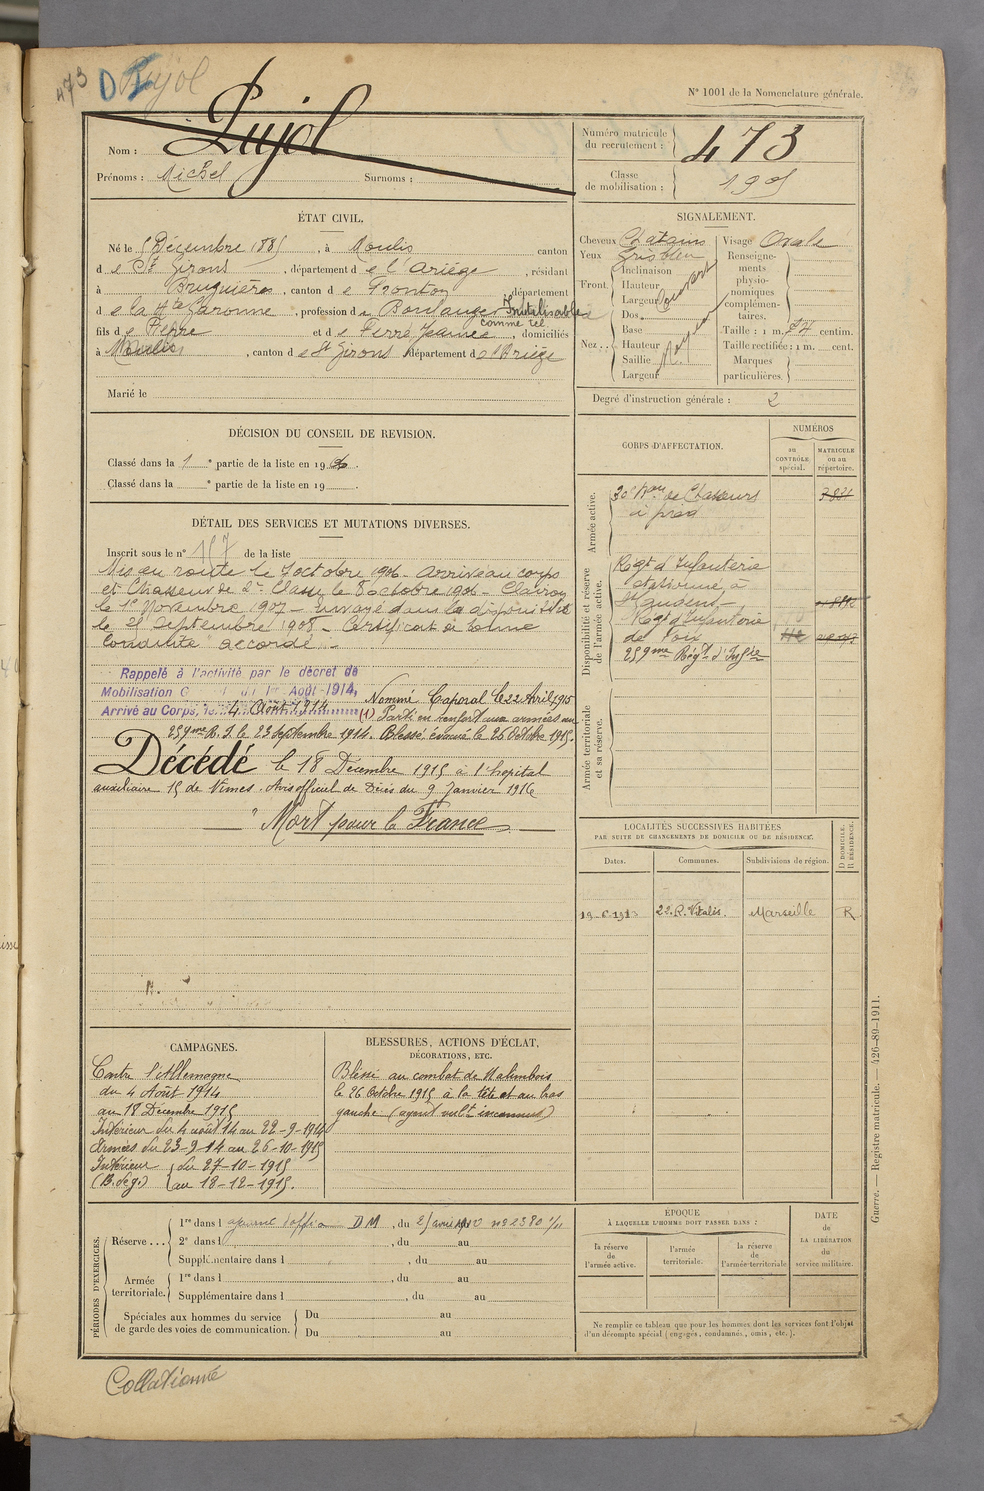 473 D Pujol
N° 1001 de la Nomenclature générale.
Nom : Pujol
Prénoms : Michel Surnoms :
Numéro matricule du recrutement : 473
Classe de mobilisation : 1905
ÉTAT CIVIL.
Né le 5 Décembre 1885, à Moulis canton
d e St Girons, département d e l'Ariège, résidant
à Bruguières, canton d e Fronton, département
d e la Hte Garonne, profession d e Boulanger Inutilisable comme tel
fils d e Pierre et d e Ferré Jeanne, domiciliés
à Moulis, canton d e St Girons, département d e l'Ariège
Marié le
SIGNALEMENT.
Cheveux Chatains
Yeux Gris bleu
Front. Inclinaison
Hauteur
Largeur
Couvert
Nez.. Dos.
Base
Hauteur
Saillie
Largeur
Moyen
Visage Ovale
Renseignements physionomiques complémentaires.
Taille : 1 m. centim.
Taille rectifiée : 1 m. cent.
Marques particulières.
Degré d'instruction générale : 2
DÉCISION DU CONSEIL DE REVISION.
Classé dans la 1 e partie de la liste en 1906.
Classé dans la e partie de la liste en 19 .
DÉTAIL DES SERVICES ET MUTATIONS DIVERSES.
Inscrit sous le n° 157 de la liste
Mis en route le 7 octobre 1906 - Arrivé au corps
et Chasseur de 2e Classe le 8 octobre 1906 - Clairon
le 1er Novembre 1907 - envoyé dans la disponibilité
le 25 Septembre 1908 - Certificat de bonne
conduite accordé -
Rappelé à l'activité par le décret de
Mobilisation G l du 1er Août 1914,
Arrivé au Corps, le 4 Août 1914 Nommé Caporal le 22 Avril 1915
(1) Parti en renfort aux armées au
259me R. I. le 23 septembre 1914. Blessé, évacué le 26 Octobre 1915.
Décédé le 18 Décembre 1915 à l'hopital
auxiliaire 15 de Nimes. Avis officiel de Décès du 9 Janvier 1916
" Mort pour la France "
CORPS D'AFFECTATION.
NUMÉROS
au CONTRÔLE spécial.
MATRICULE ou au répertoire.
Armée active.
30e Bon de Chasseurs
à pied
Disponibilité et réserve de l'armée active.
Régt d'Infanterie
stationné à
St Gaudens -
Régt d'Infanterie
de Foix
259me Régt d'Infie
Armée territoriale et sa réserve.
LOCALITÉS SUCCESSIVES HABITÉES
PAR SUITE DE CHANGEMENTS DE DOMICILE OU DE RÉSIDENCE.
D DOMICILE. R RÉSIDENCE.
Dates. Communes. Subdivisions de région.
1913 22. R. Vitalis. Marseille R
CAMPAGNES.
Contre l'Allemagne
du 4 Août 1914
au 18 Décembre 1915
Intérieur du 4 août 14 au 22-9-1914
Armées du 23-9-14 au 26-10-1915
Intérieur du 27-10-1915
(B. de g.) au 18-12-1915.
BLESSURES, ACTIONS D'ÉCLAT,
DÉCORATIONS, ETC.
Blessé au combat de Malimbois
le 26 Octobre 1915 à la tête et au bras
gauche (agent vult inconnus)
PÉRIODES D'EXERCICES.
Réserve ... 1re dans l , du au n° 2380
2e dans l , du au
Supplémentaire dans l , du au
Armée territoriale. 1re dans l , du au
Supplémentaire dans l , du au
Spéciales aux hommes du service de garde des voies de communication. Du au
Du au
ÉPOQUE
À LAQUELLE L'HOMME DOIT PASSER DANS :
la réserve de l'armée active.
l'armée territoriale.
la réserve de l'armée territoriale
DATE de LA LIBÉRATION du service militaire.
Ne remplir ce tableau que pour les hommes dont les services font l'objet
d'un décompte spécial (engagés, condamnés, omis, etc.).
Guerre. — Registre matricule. — 426-89-1911.
Collationné